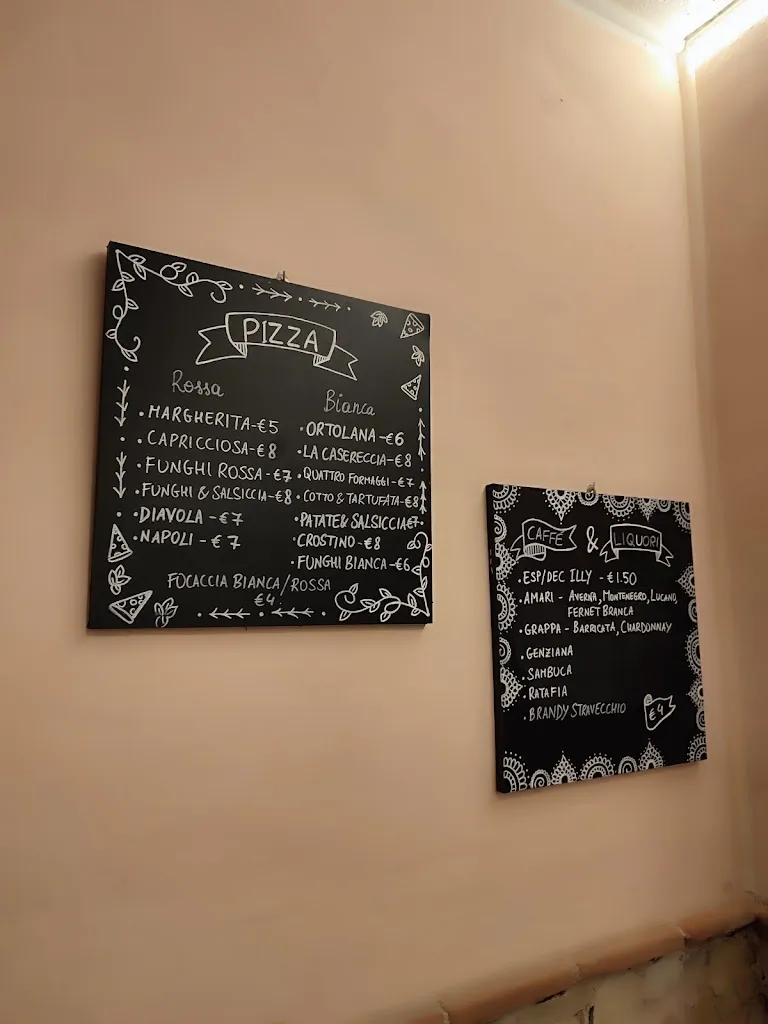 PIZZA
Rossa
• MARGHERITA-€5
• CAPRICCIOSA-€8
• FUNGHI ROSSA-€7
• FUNGHI & SALSICCIA-€8
• DIAVOLA -€7
• NAPOLI - €7
Bianca
• ORTOLANA -€6
• LA CASERECCIA-€8
• QUATTRO FORMAGGI-€7
• COTTO & TARTUFATA-€8
• PATATE & SALSICCIA €7
• CROSTINO -€8
• FUNGHI BIANCA-€6
FOCACCIA BIANCA/ROSSA
€4
CAFFÉ & LIQUORI
• ESP/DEC ILLY -€1.50
• AMARI - AVERNA, MONTENEGRO, LUCANO,
FERNET BRANCA
• GRAPPA - BARRICATA, CHARDONNAY
• GENZIANA
• SAMBUCA
• RATAFIA
• BRANDY STRAVECCHIO
€4